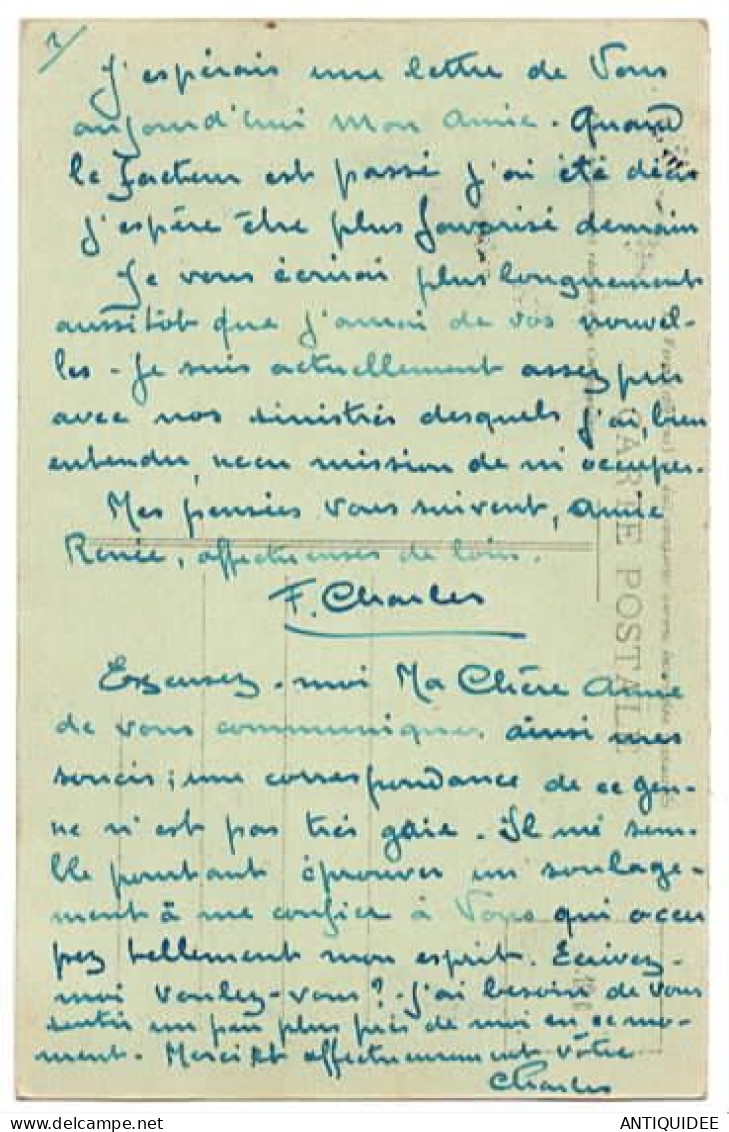 2
J'espérais une lettre de Vous
aujourd'hui mon amie. Quand
le facteur est passé j'ai été déçu
j'espère être plus favorisé demain
Je vous écrirai plus longuement
aussitôt que j'aurai de vos nouvel-
les - Je suis actuellement assez pris
avec nos sinistrés desquels j'ai, bien
entendu, reçu mission de m'occuper.
Mes pensées vous suivent, amie
Renée, affectueuses de loin.
F. Charles
Excusez-moi Ma Chère Amie
de vous communiquer ainsi mes
soucis ; une correspondance de ce gen-
re n'est pas très gaie. Il me sem-
ble pourtant éprouver un soulage-
ment à me confier à Vous qui occu
pez tellement mon esprit. Ecrivez-
moi voulez-vous ? - J'ai besoin de vous
sentir un peu plus près de moi en ce mo-
ment. Merci et affectueusement vôtre
Charles
CARTE POSTALE
ANTIQUIDEE